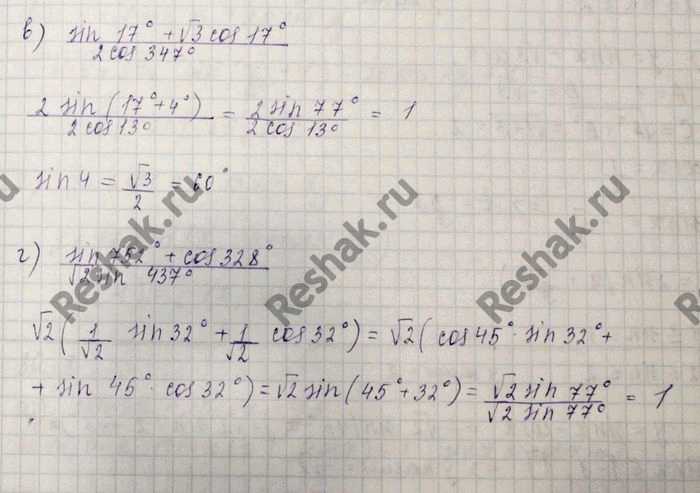 в) sin 17° + √3 cos 17°
2 cos 347°
2 sin (17° + 4°) = 2 sin 77° = 1
2 cos 13° 2 cos 13°
sin 4 = √3 = 60°
2
г) sin 752° + cos 328°
√2 sin 437°
√2 ( 1 sin 32° + 1 cos 32° ) = √2 ( cos 45° · sin 32° +
√2 √2
+ sin 45° · cos 32° ) = √2 sin ( 45° + 32° ) = √2 sin 77° = 1
√2 sin 77°
Reshak.ru
Reshak.ru
Reshak.ru
Reshak.ru